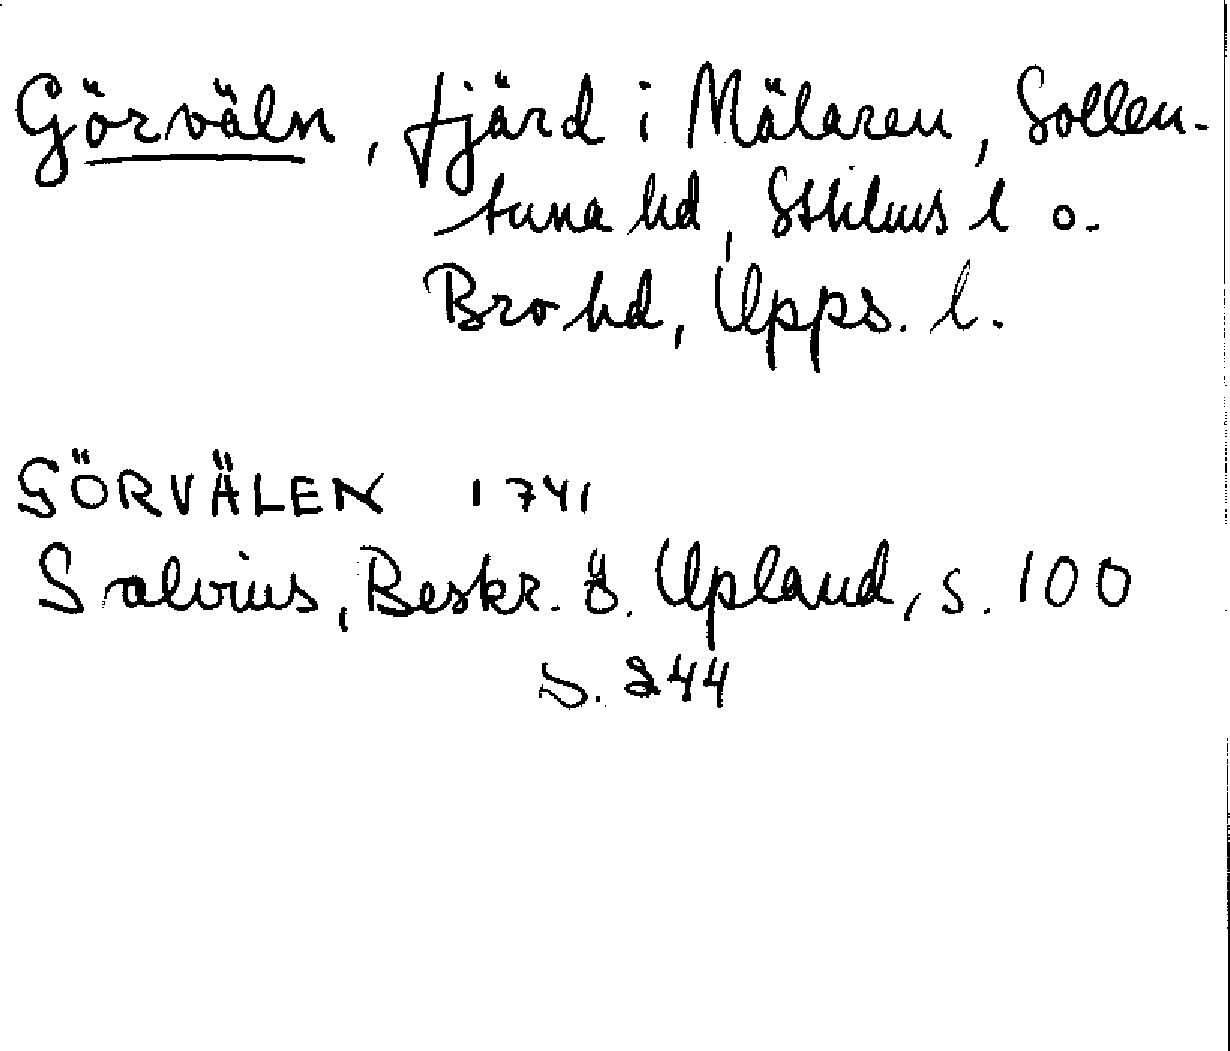 Görväln, fjärd i Mälaren, Sollen-
tuna hd, Sthlms l o.
Bro hd, Upps. l.
GÖRVÄLEN 1741
Salvius, Beskr. ö. Upland, s. 100
s. 244